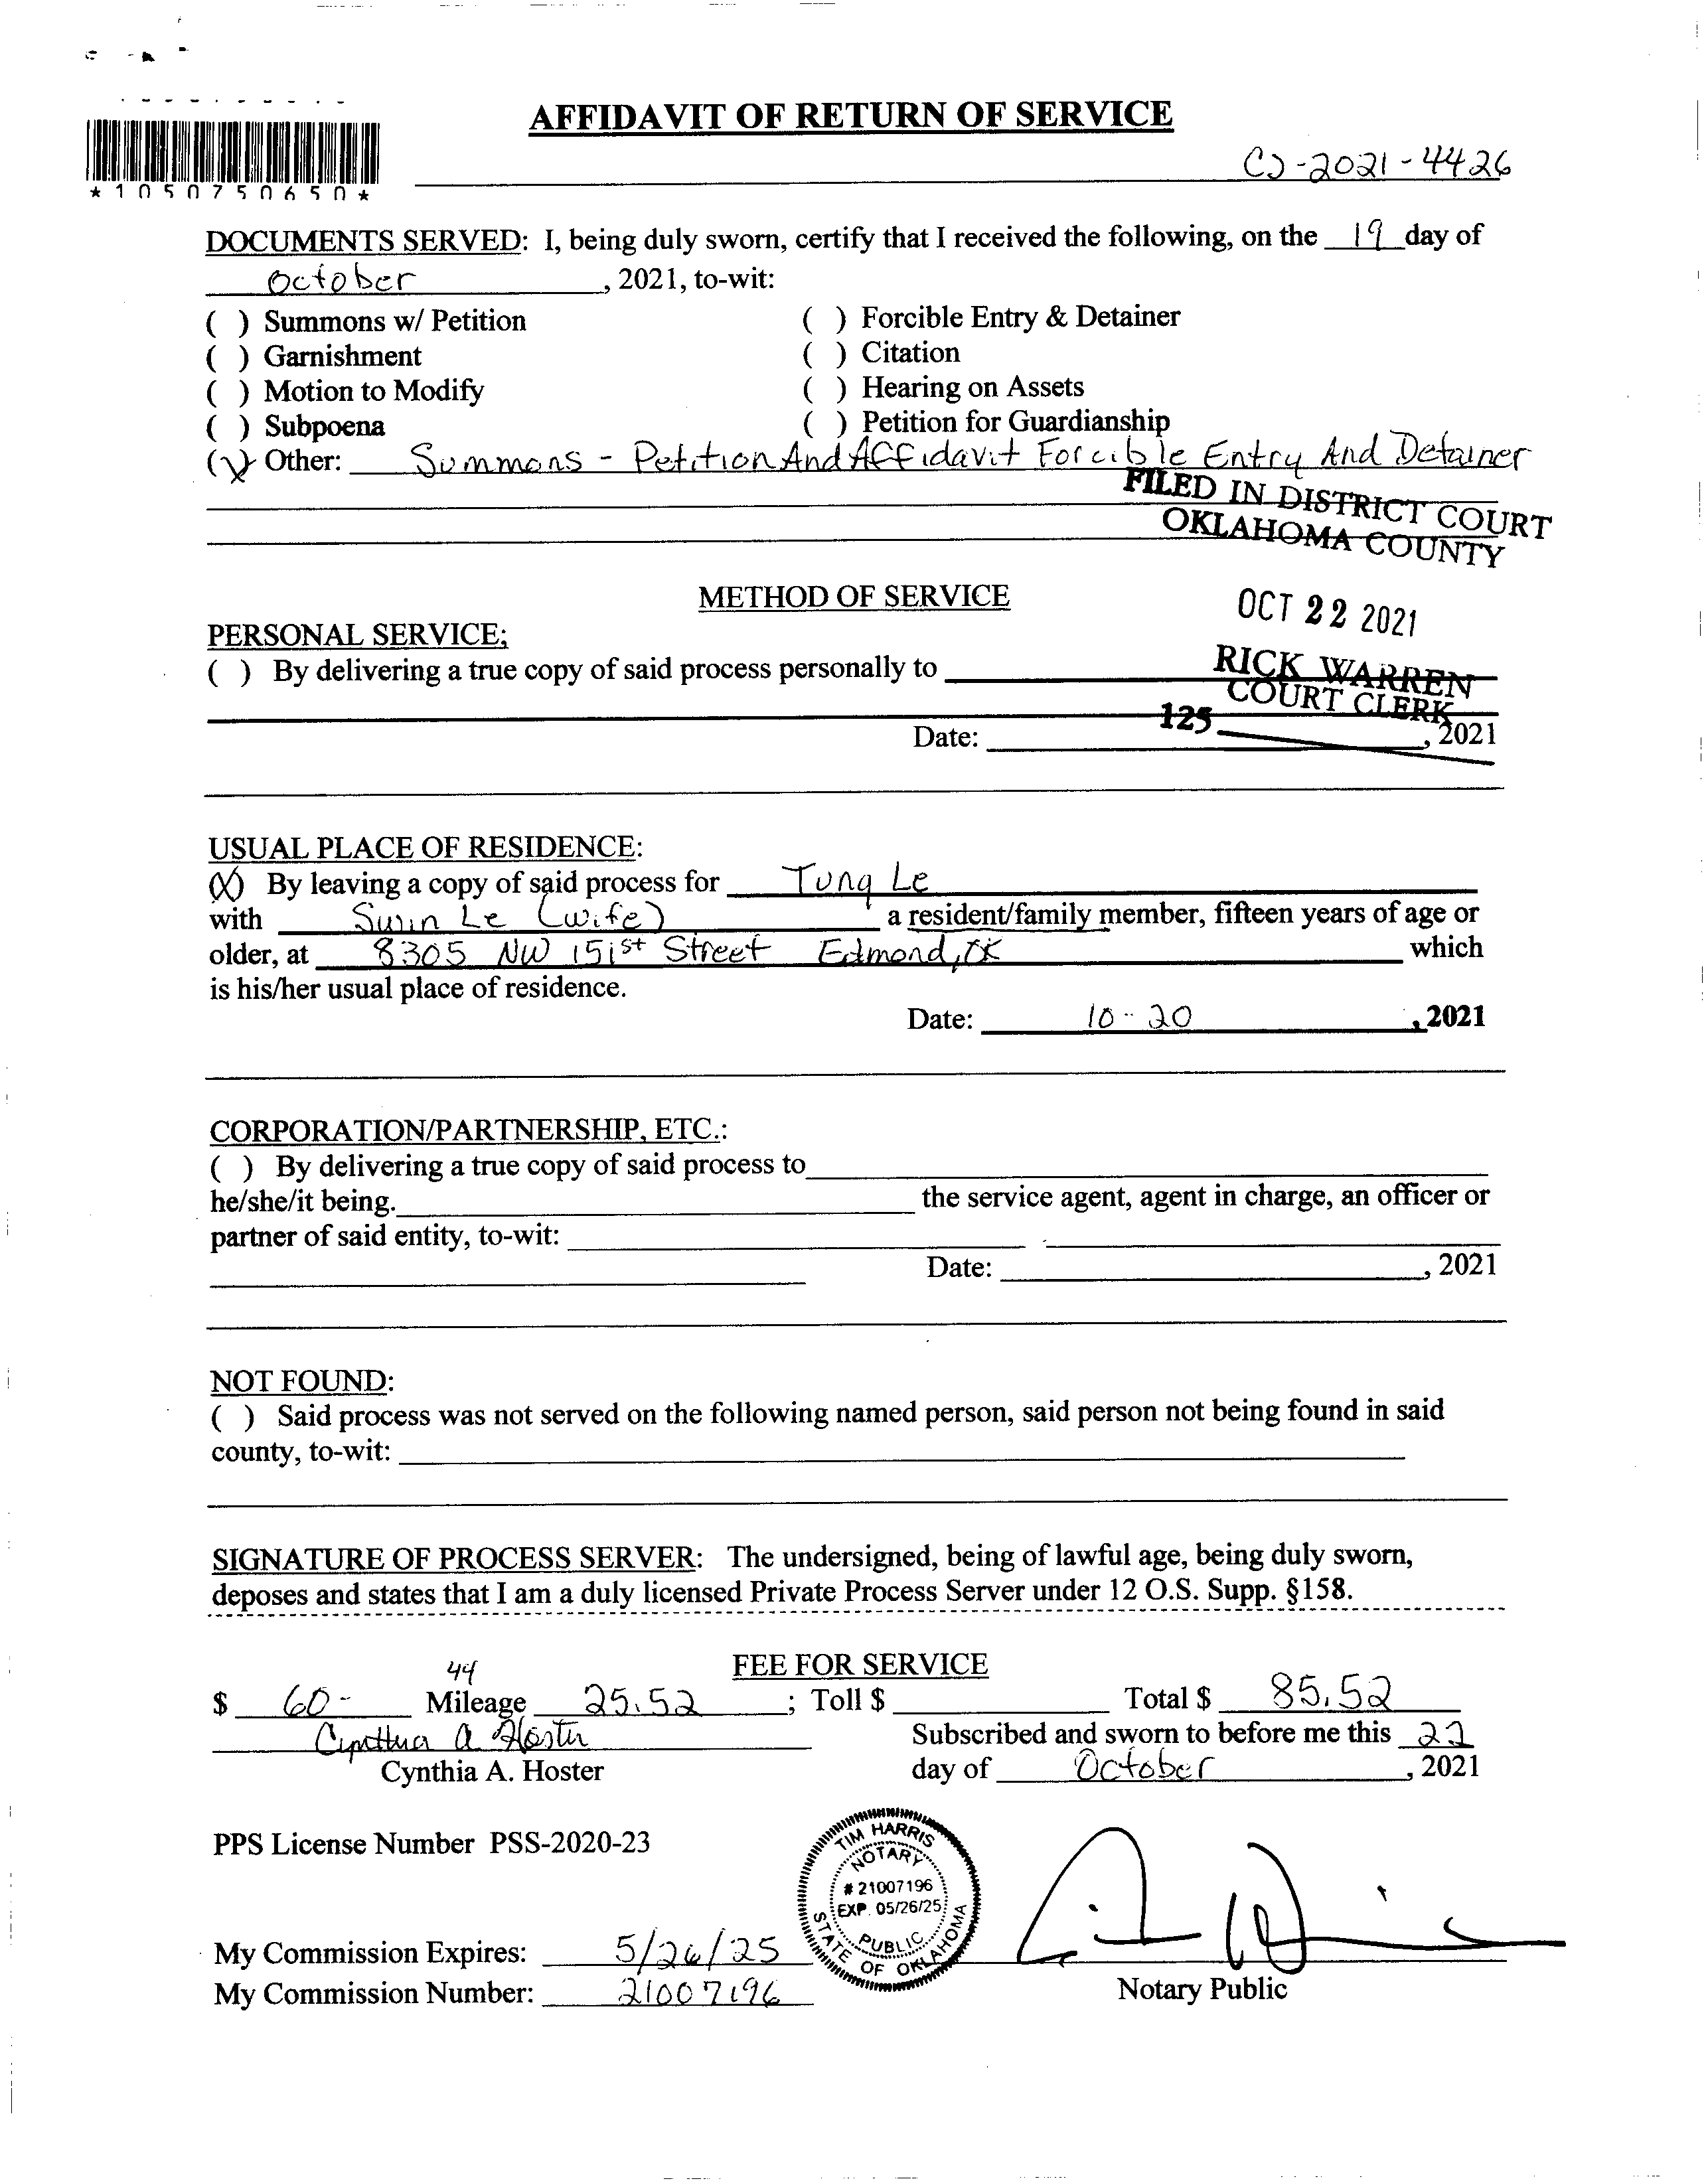 AFFIDAVIT OF RETURN OF SERVICE
CJ-2021-4426
*1050750650*
DOCUMENTS SERVED: I, being duly sworn, certify that I received the following, on the 19 day of
October, 2021, to-wit:
( ) Summons w/ Petition ( ) Forcible Entry & Detainer
( ) Garnishment ( ) Citation
( ) Motion to Modify ( ) Hearing on Assets
( ) Subpoena ( ) Petition for Guardianship
(X) Other: Summons - Petition And Affidavit Forcible Entry And Detainer
FILED IN DISTRICT COURT
OKLAHOMA COUNTY
METHOD OF SERVICE
OCT 22 2021
PERSONAL SERVICE;
( ) By delivering a true copy of said process personally to
RICK WARREN
COURT CLERK
125
Date: , 2021
USUAL PLACE OF RESIDENCE:
(X) By leaving a copy of said process for Tung Le
with Le (wife) a resident/family member, fifteen years of age or
older, at 8305 NW 151st Street Edmond, OK which
is his/her usual place of residence.
Date: 10-20, 2021
CORPORATION/PARTNERSHIP, ETC.:
( ) By delivering a true copy of said process to
he/she/it being. the service agent, agent in charge, an officer or
partner of said entity, to-wit:
Date: , 2021
NOT FOUND:
( ) Said process was not served on the following named person, said person not being found in said
county, to-wit:
SIGNATURE OF PROCESS SERVER: The undersigned, being of lawful age, being duly sworn,
deposes and states that I am a duly licensed Private Process Server under 12 O.S. Supp. §158.
FEE FOR SERVICE
44
$ 60- Mileage 25.52; Toll $ Total $ 85.52
Cynthia A Hoster Subscribed and sworn to before me this 22
Cynthia A. Hoster day of October, 2021
PPS License Number PSS-2020-23
TIM HARRIS
NOTARY
# 21007196
EXP. 05/26/25
PUBLIC
STATE OF OKLAHOMA
My Commission Expires: 5/26/25
My Commission Number: 21007196 Notary Public